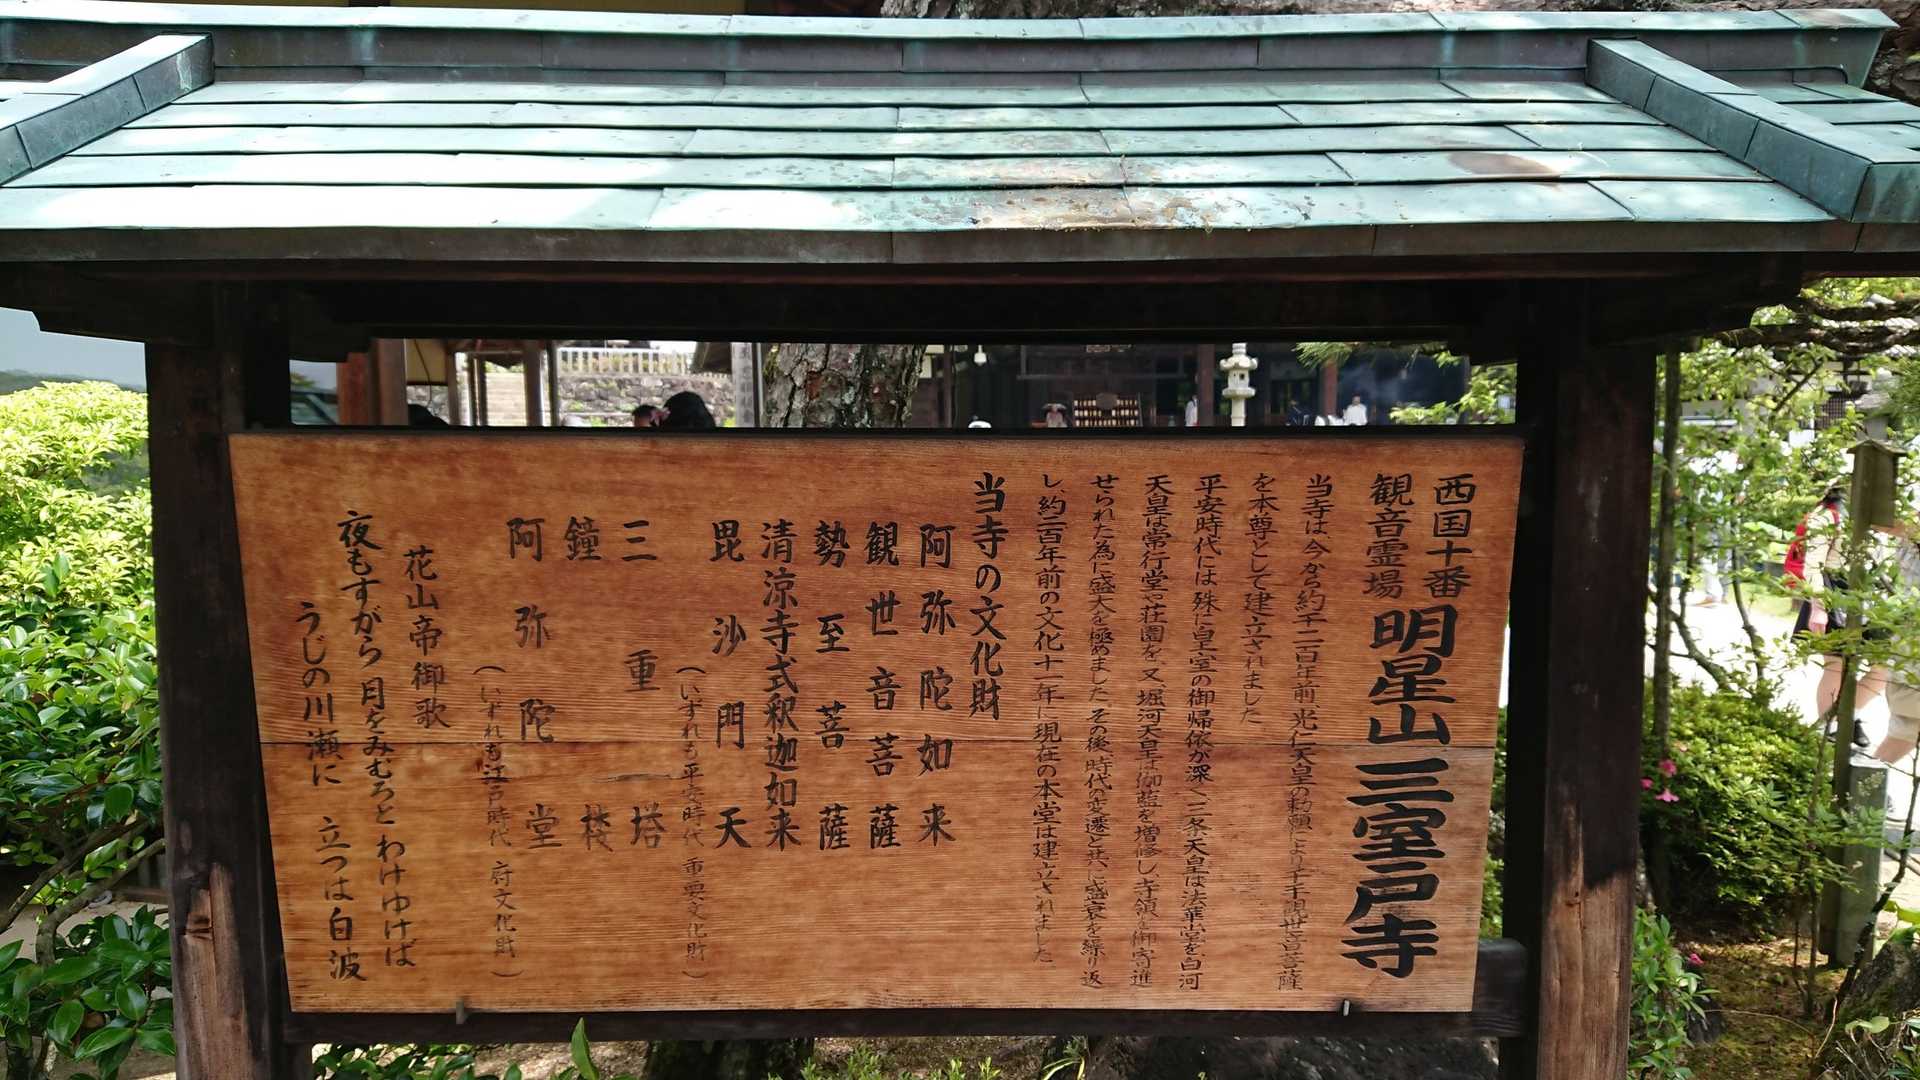 西国十番
観音霊場
明星山三室戸寺
当寺は、今から約千二百年前、光仁天皇の勅願により千手観世音菩薩
を本尊として建立されました。
平安時代には殊に皇室の御帰依が深く、三条天皇は法華堂を、白河
天皇は常行堂や荘園を、又、堀河天皇は伽藍を増修し、寺領を御寄進
せられた為に盛大を極めました。その後、時代の変遷と共に盛衰を繰り返
し、約二百年前の文化十一年に現在の本堂は建立されました。
当寺の文化財
阿弥陀如来
観世音菩薩
勢至菩薩
清涼寺式釈迦如来
毘沙門天
(いずれも平安時代 重要文化財)
三重塔
鐘楼
阿弥陀堂
(いずれも江戸時代 府文化財)
花山帝御歌
夜もすがら月をみむろと わけゆけば
うじの川瀬に 立つは白波